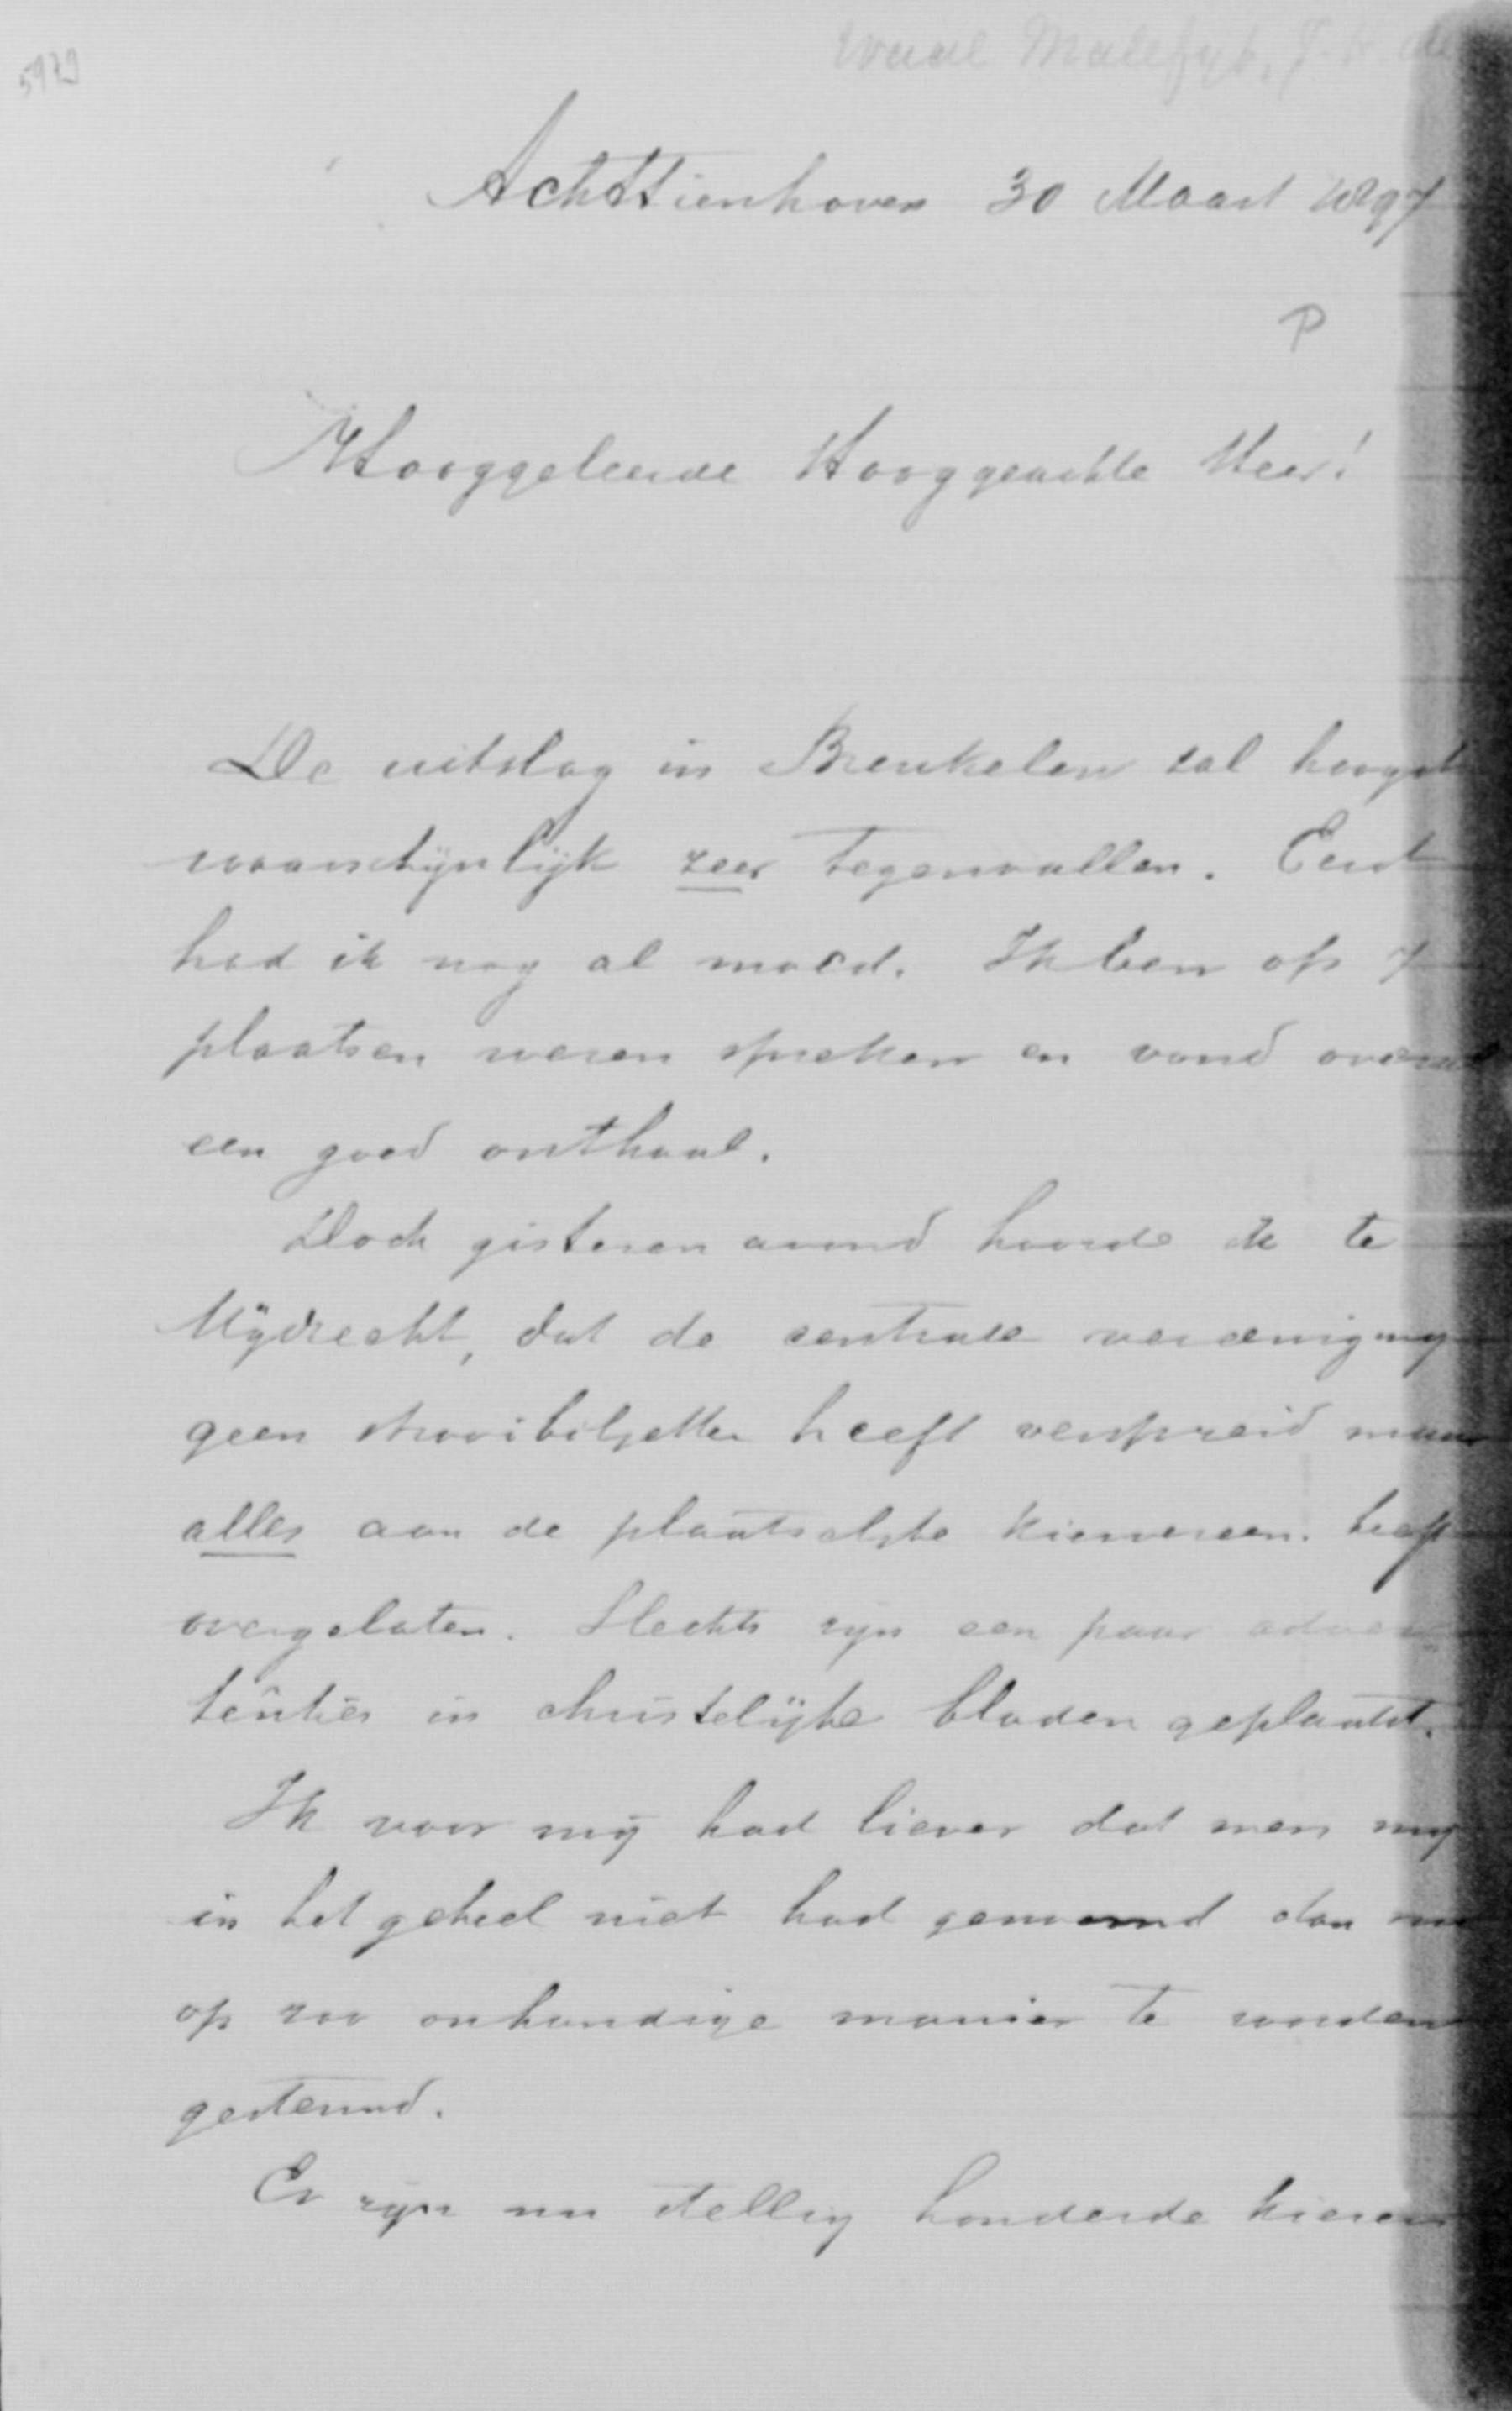 5979
Waal Malefijt, J. H. de
Achttienhoven 30 Maart 1897
P
Hooggeleerde Hooggeachte Heer!
De uitslag in Breukelen zal hoogst
waarschijnlijk zeer tegenvallen. Eerst
had ik nog al moed. Ik ben op 7
plaatsen wezen spreken en vond overal
een goed onthaal.
Doch gisteren avond hoorde ik te
Mijdrecht, dat de centrale vereeniging
geen strooibiljetten heeft verspreid maar
alles aan de plaatselijke kiesvereen. heeft
overgelaten. Slechts zijn een paar adver-
tentiën in christelijke bladen geplaatst.
Ik voor mij had liever dat men mij
in het geheel niet had genoemd dan nu
op zoo onhandige manier te worden
gesteund.
Er zijn nu stellig honderde kiezers